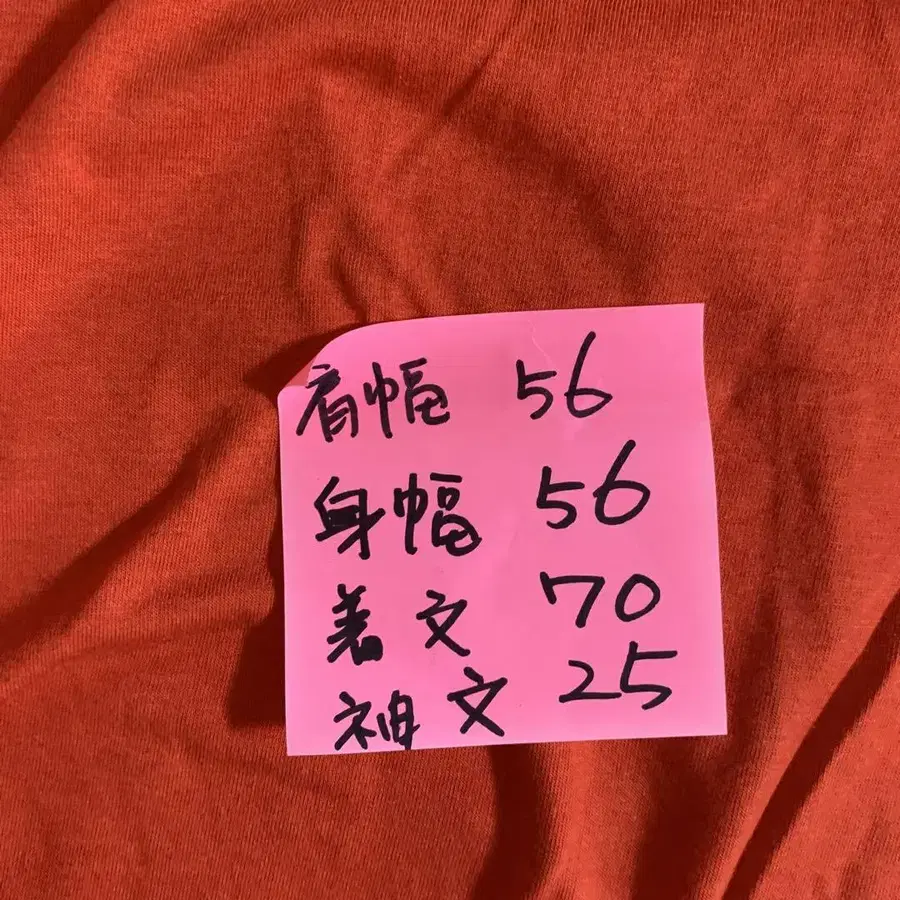 肩幅 56
身幅 56
着文 70
袖文 25